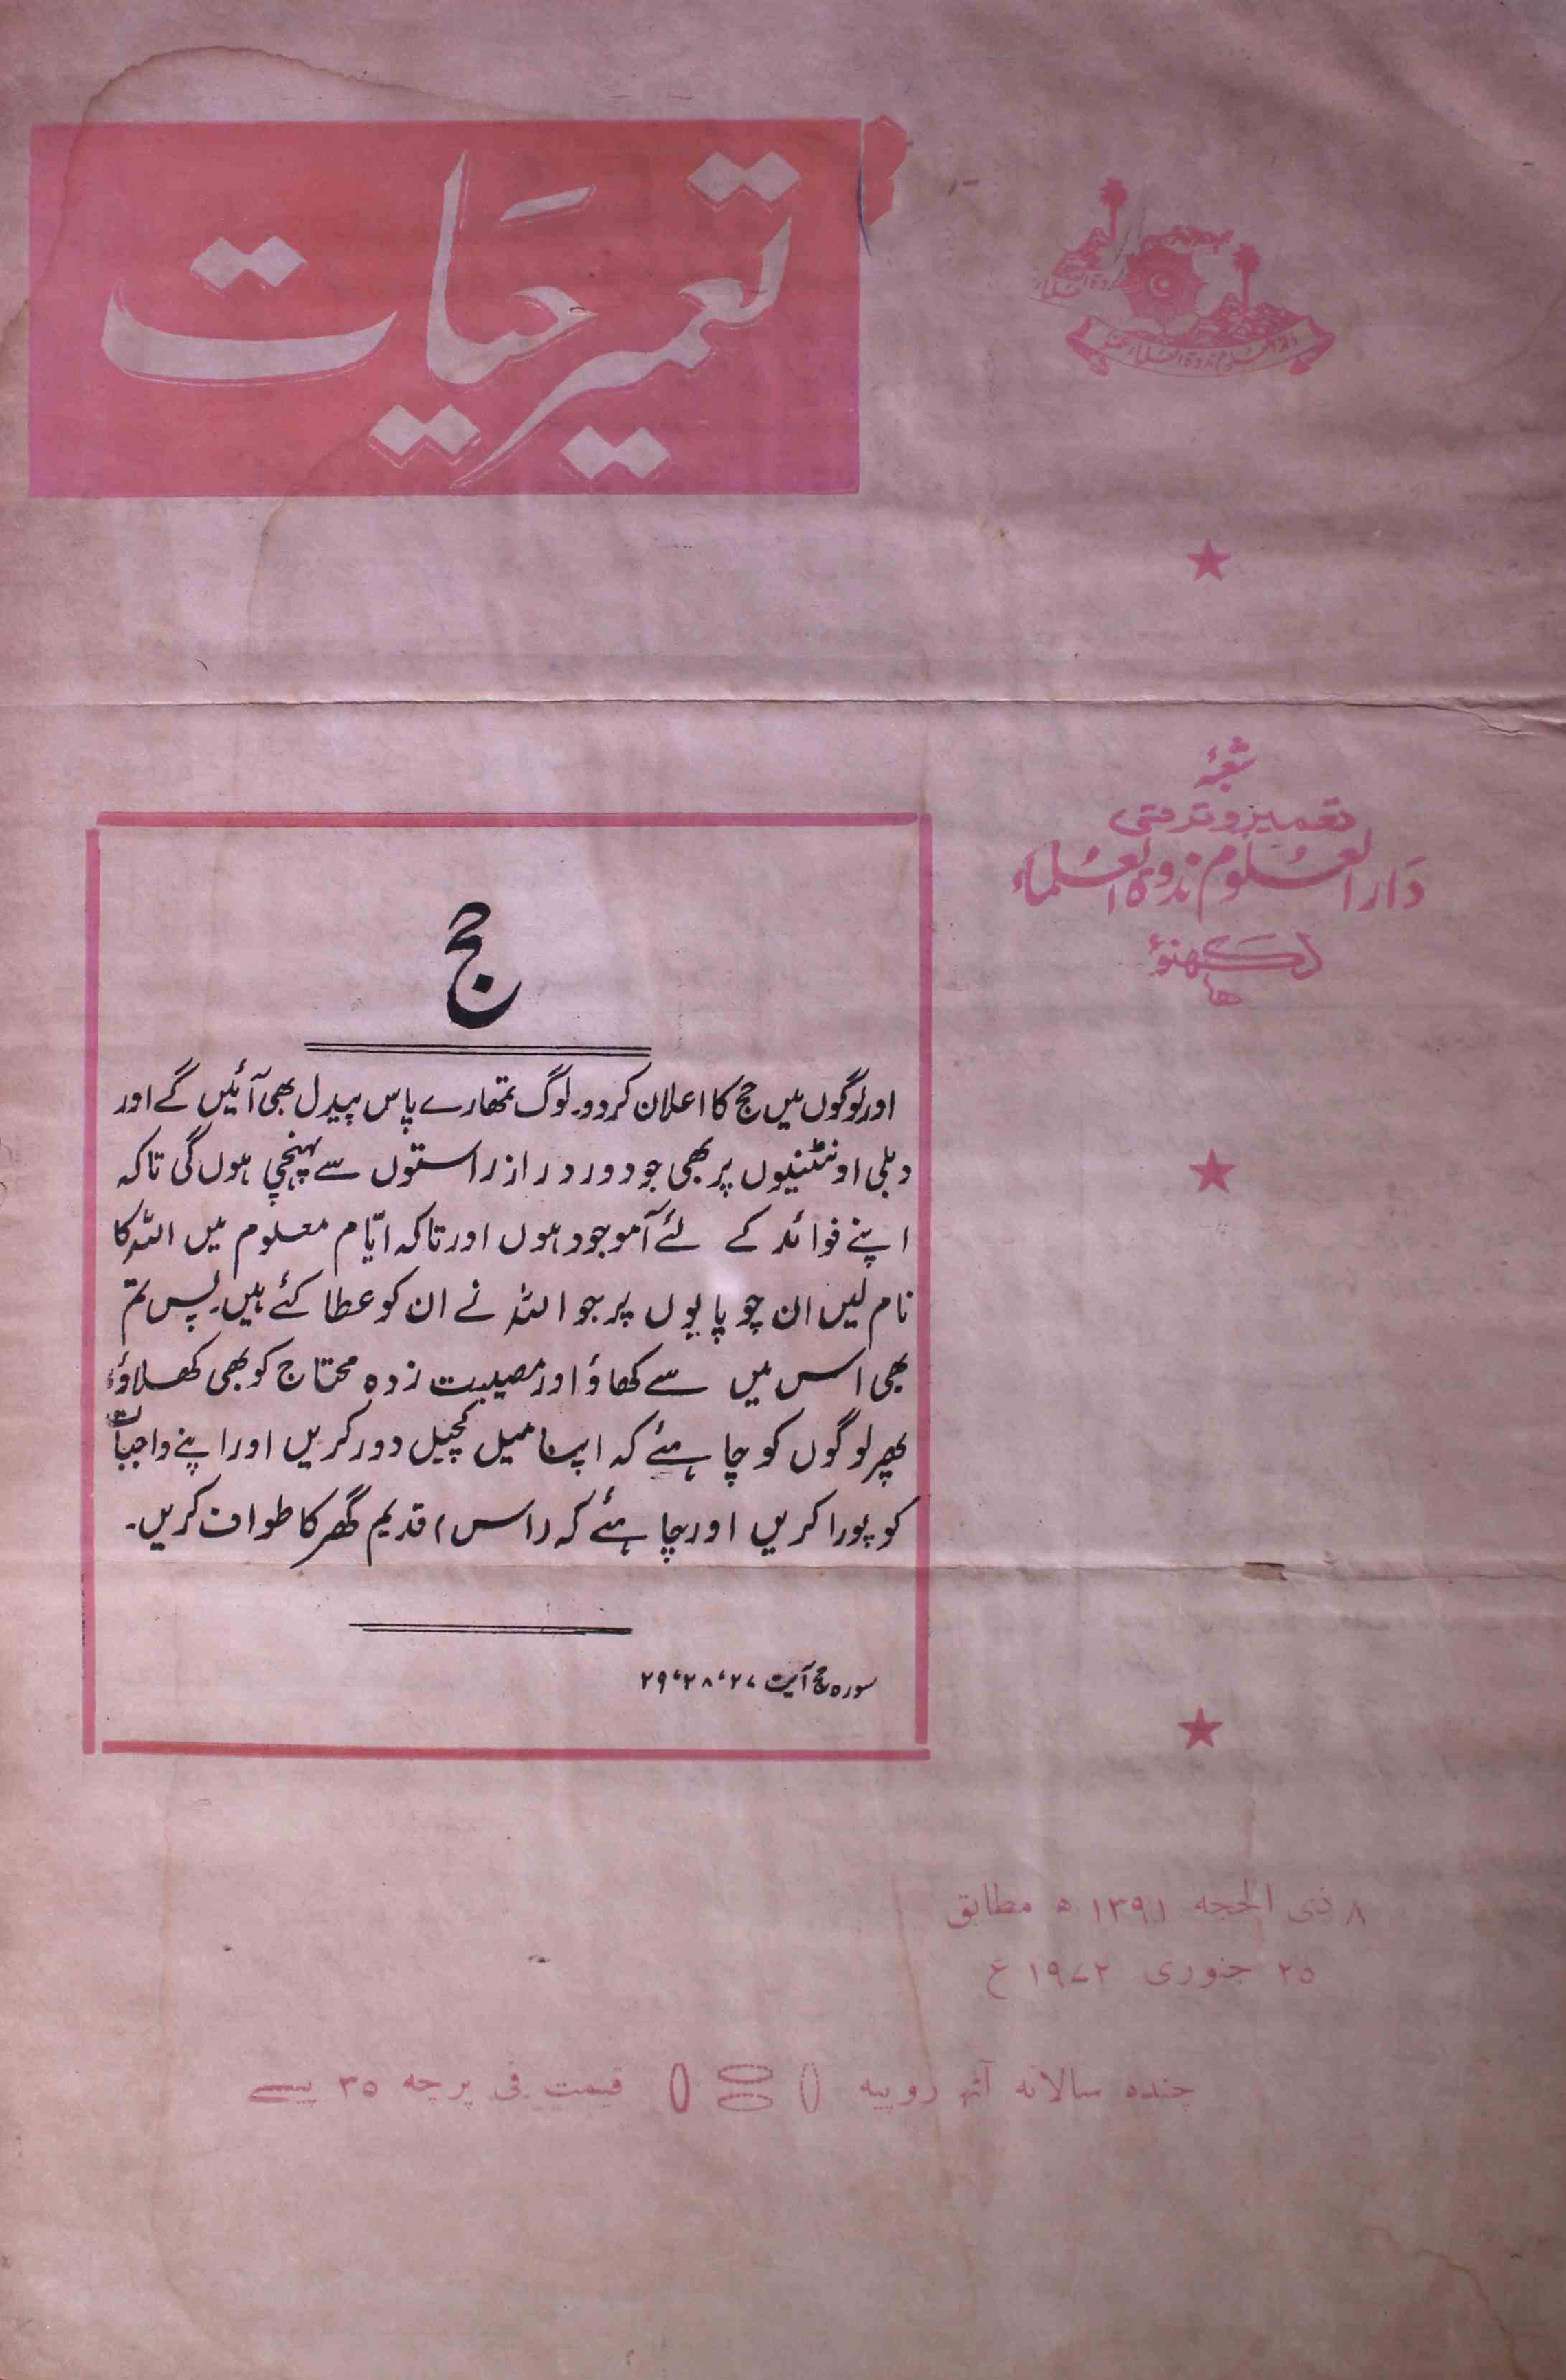 تعمیر حیات
شعبۂ
تعمیر و ترقی
دار العلوم ندوۃ العلماء
لکھنؤ
حج
اور لوگوں میں حج کا اعلان کر دو۔ لوگ تمھارے پاس پیدل بھی آئیں گے اور
دبلی اونٹنیوں پر بھی جو دور دراز راستوں سے پہنچی ہوں گی تاکہ
اپنے فوائد کے لئے آموجود ہوں اور تاکہ ایّام معلوم میں اللہ کا
نام لیں ان چوپایوں پر جو اللہ نے ان کو عطا کئے ہیں۔ پس تم
بھی اس میں سے کھاؤ اور مصیبت زدہ محتاج کو بھی کھلاؤ،
پھر لوگوں کو چاہئے کہ اپنا میل کچیل دور کریں اور اپنے واجبات
کو پورا کریں اور چاہئے کہ (اس) قدیم گھر کا طواف کریں۔
سورہ حج آیت ۲۷، ۲۸، ۲۹
۸ ذی الحجہ ۱۳۹۱ ھ مطابق
۲۵ جنوری ۱۹۷۲ ع
چندہ سالانہ آٹھ روپیہ قیمت فی پرچہ ۳۵ پیسے